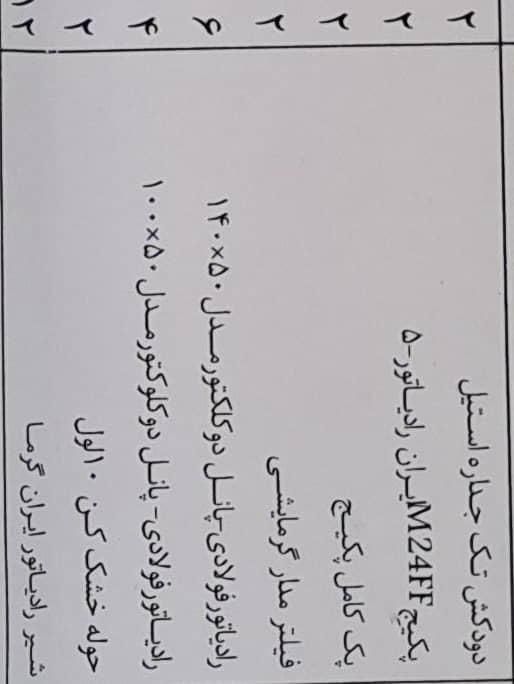 دودکش تک جداره استیل ۲
پکیج M24FF ایران رادیاتور-۵ ۲
پک کامل پکیج ۲
فیلتر مدار گرمایشی ۲
رادیاتورفولادی-پانل دوکلکتورمدل ۵۰×۱۴۰ ۶
رادیاتورفولادی-پانل دوکلوکتورمدل ۵۰×۱۰۰ ۴
حوله خشک کن ۱۰لول ۲
شیر رادیاتور ایران گرما ۱۲